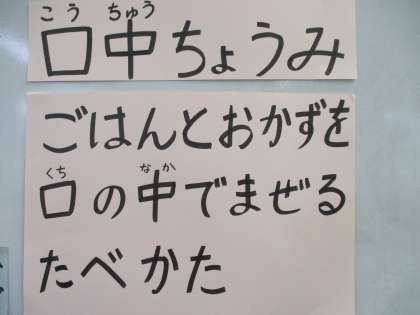 こうちゅう
口中ちょうみ
ごはんとおかずを
くち なか
口の中でまぜる
たべかた